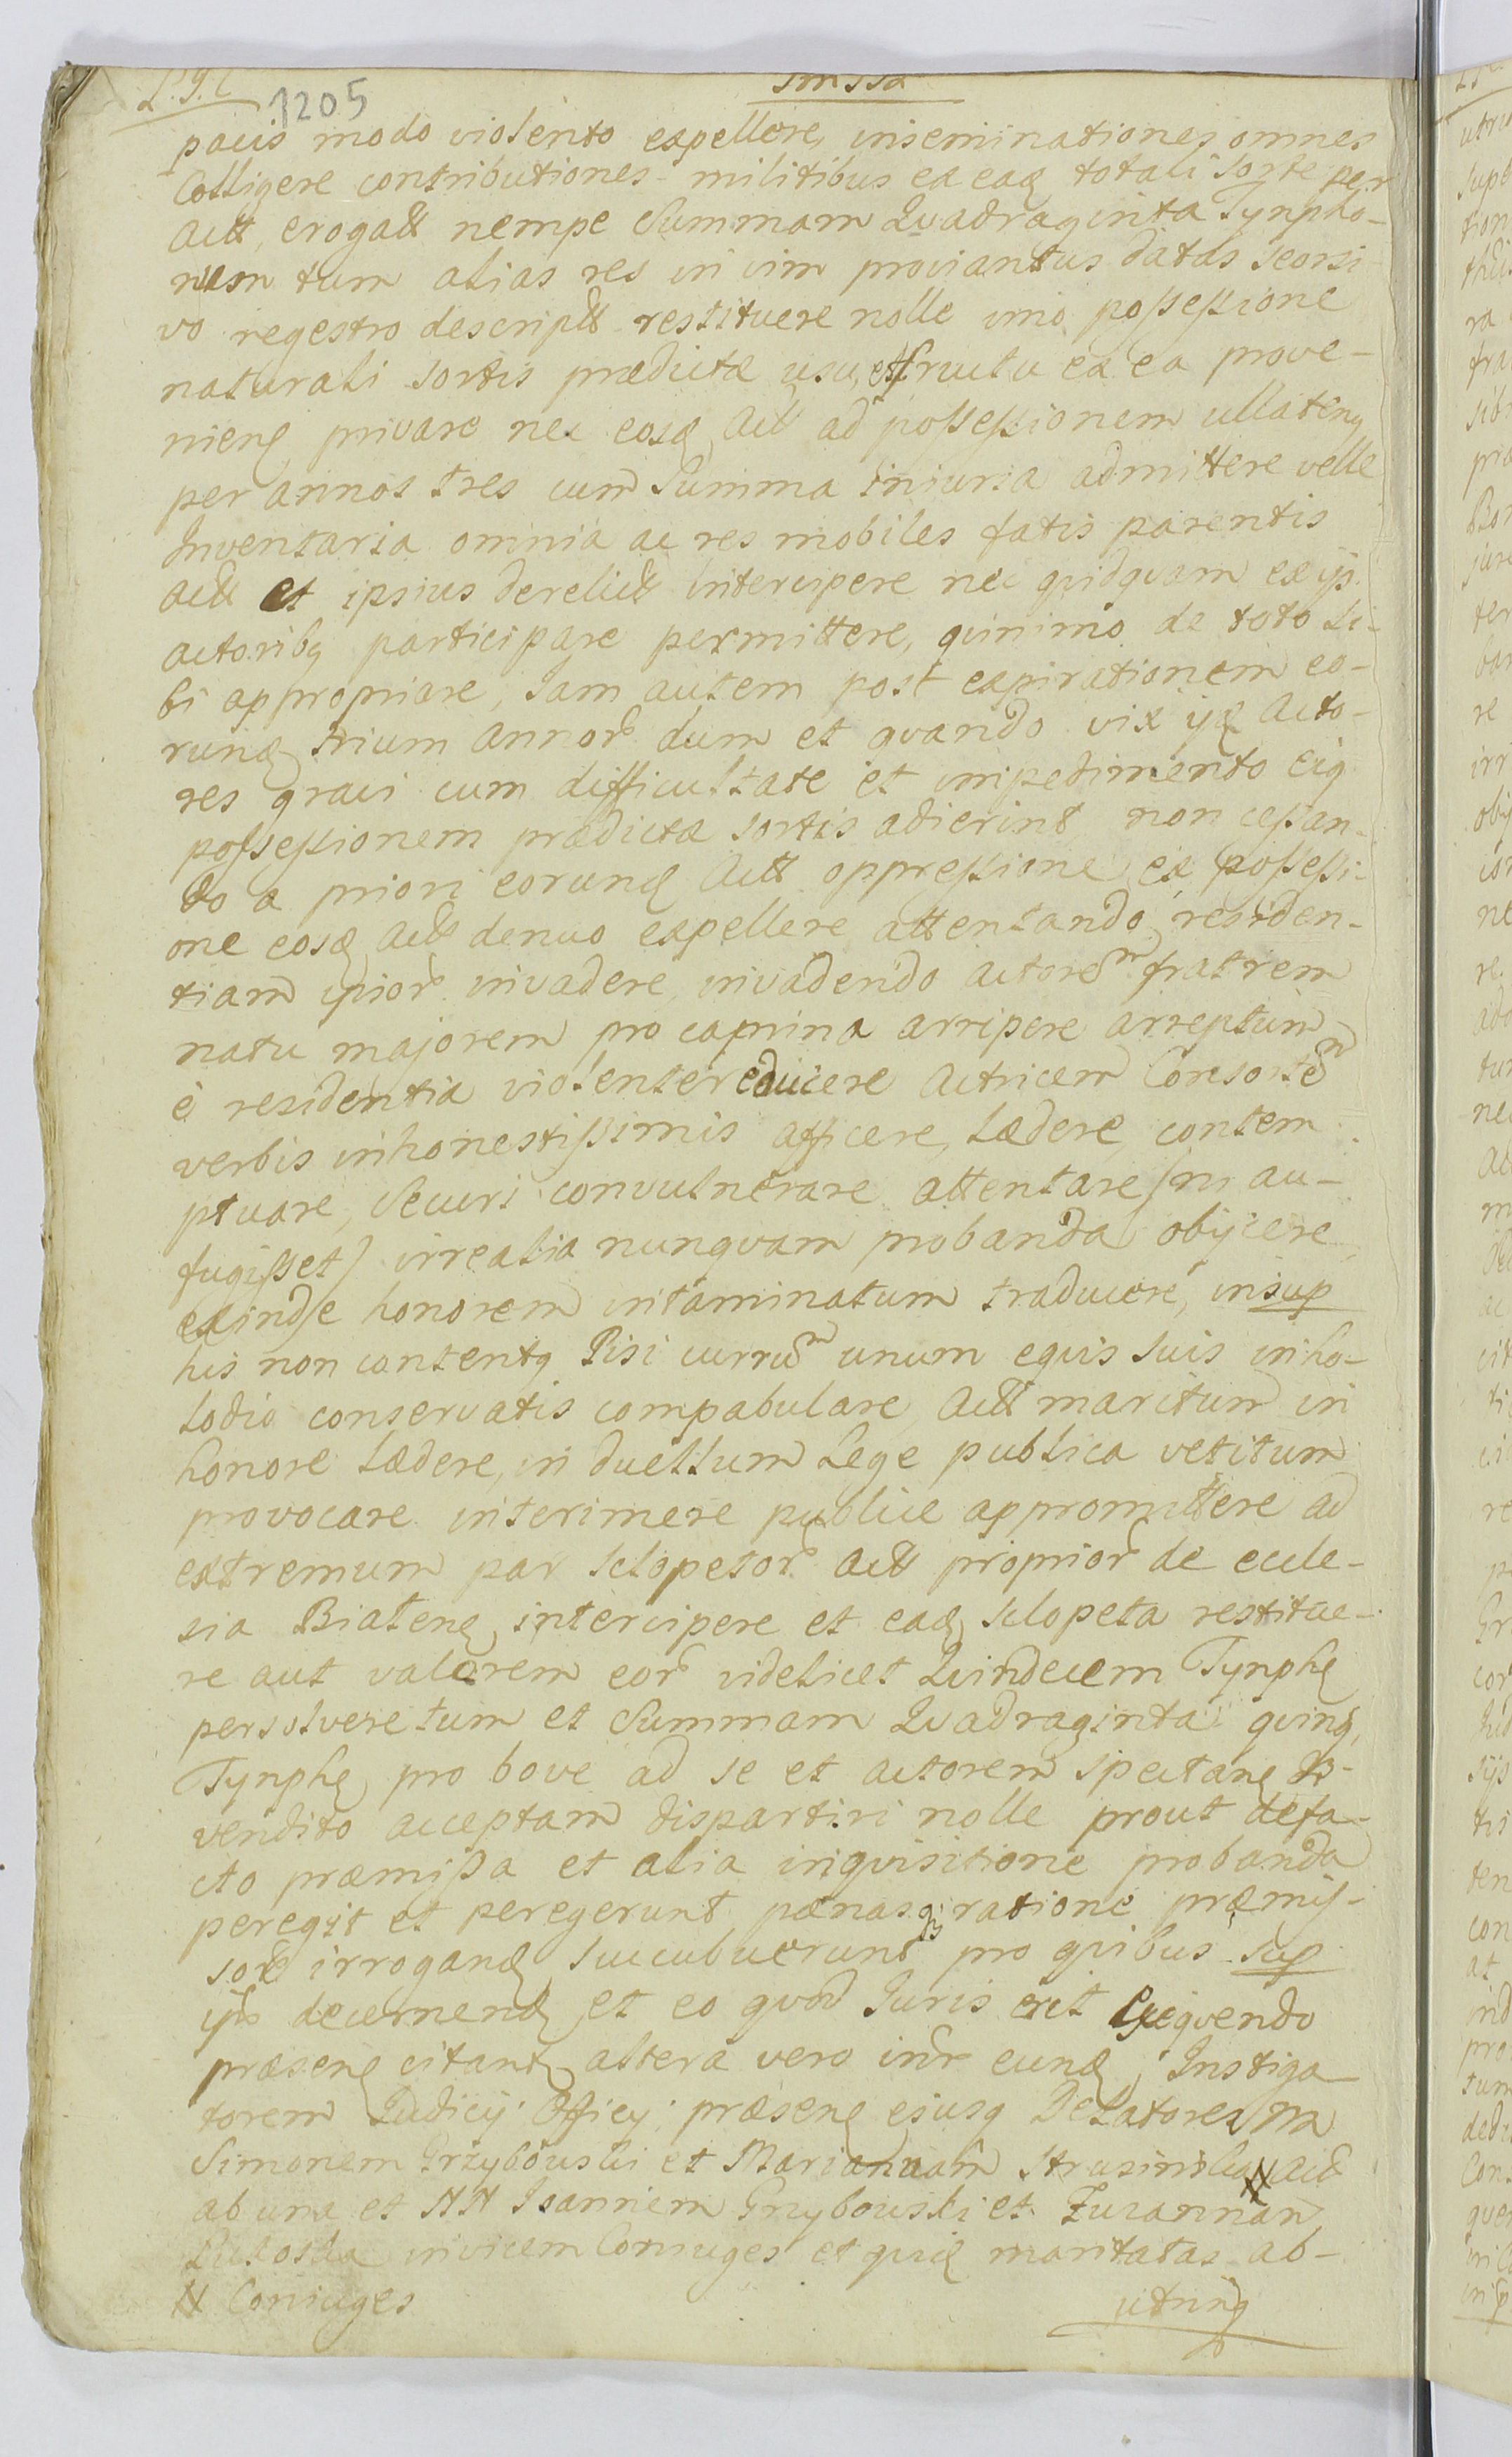 1205
pacis modo violento expellere, inseminationes omnes
Colligere contributiones militibus ex eaq totali sorte per
Actt, erogatt nempe Summam Quadraginta Tynpho-
num tum alias res in vim proviantus datas seorsi
vo regestro descriptt restituere nolle imo possessione
naturali sortis prædictæ usu, et fructu ex ea prove-
nienę privare nec eosq Actt ad possessionem ullatenq
per annos tres cum Summa iniuria admittere velle
Inventaria omnia ac res mobiles fatis parentis
Actt et ipsius derelictt intercipere nec quidquam ex ijs
actoribq participare permittere, quinimo de toto si-
bi appropriare, Jam autem post expirationem eo-
rundę trium annor dum et quando vix ijdę Acto-
res gravi cum difficultate et impedimento eiq
possessionem prædictæ sortis adierint non cessan-
do a priori eorundę Actt oppressione ex possessi-
one eosq Actt denuo expellere attentando, residen-
tiam ipsior invadere, invadendo actorem fratrem
natu majorem pro caprina arripere arreptum
è residentia violenter educere Actricem Consortem
verbis inhonestissimis afficere, lædere, contem
ptuare, Securi convulnerare attentare (ni au-
fugisset) irrealia nunquam probanda obijcere
exindę honorem intaminatum traducere, insup
his non contentq Pisi currum unum equis suis in ho-
lodio conservatis compabulare Actt maritum in
honore lædere, in duellum Lege publica vetitum
provocare interimere publice appromittere ad
extremum par sclopetor Actt proprior de eccle-
sia Biatenę intercipere et eadę sclopeta restitue-
re aut valorem eor videlicet Quindecem Tynphę
persolvere tum et Summam Quadraginta quinq,
Tynphę pro bove ad se et actorem spectanę
vendito acceptam dispartiri nolle prout defa-
cto præmissa et alia inquisitione probanda
peregit et peregerunt pænasq ratione præmis-
sor irrogandę succubuerunt pro quibus sup
ijs decernendę et eo quod Juris erit exequendo
præsenę citantę altera vero inr eundę Instiga
torem Judicij Officij præsenę ejusq Delatores
Simonem Grzybowski et Mariannam Actt
ab una et NN Joannem Grzybowski et Zuzannam
invicem Coniuges et quiq maritatas ab-
N Coniuges
utrinq